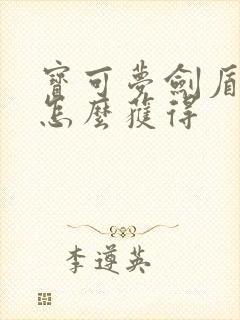 寶可夢劍盾
怎麼獲得
李遵英